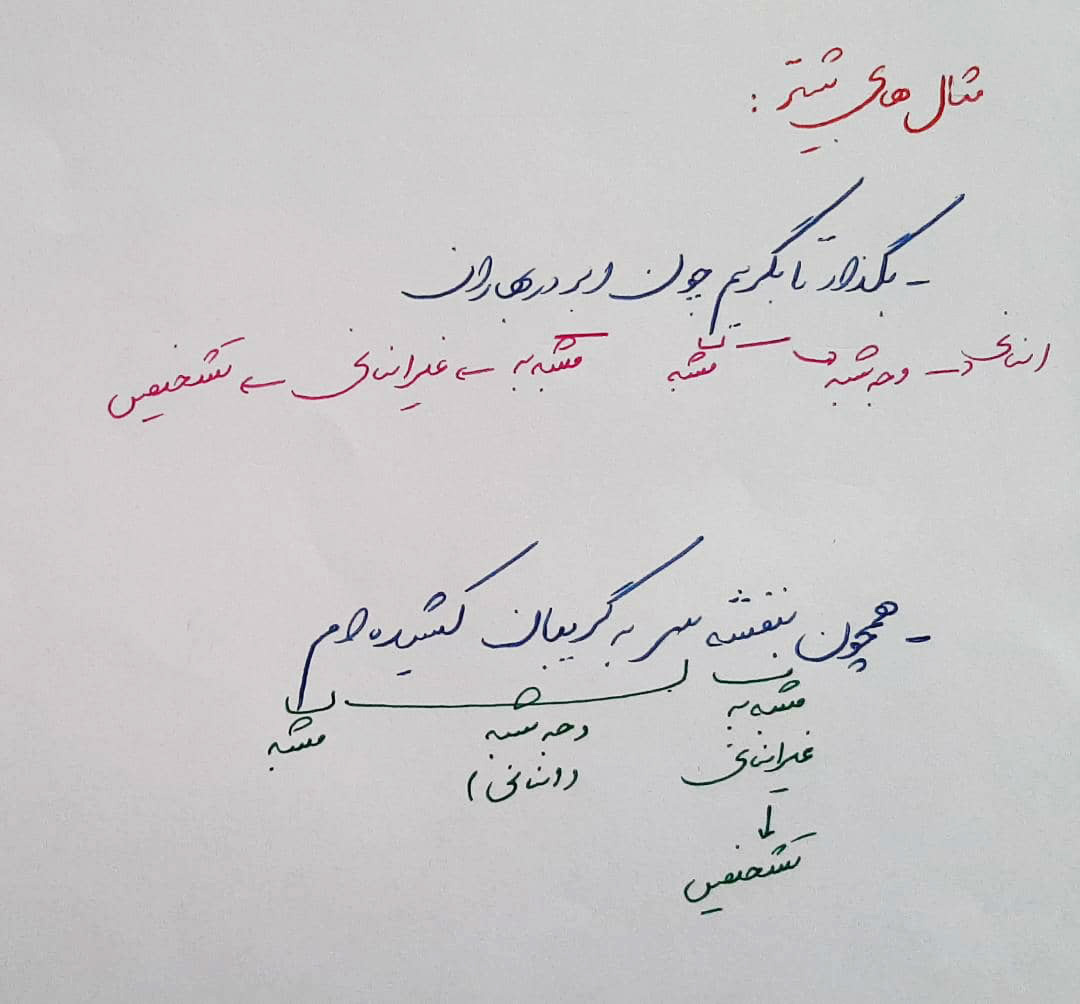 مثال های بیشتر :
- بگذار تا بگریم چون ابر در بهاران
انسانی ← وجه شبه مشبه مشبه به ← غیرانسانی ← تشخیص
- همچون بنفشه سر به گریبان کشیده ام
مشبه به وجه شبه مشبه
غیرانسانی (انسانی)
↓
تشخیص